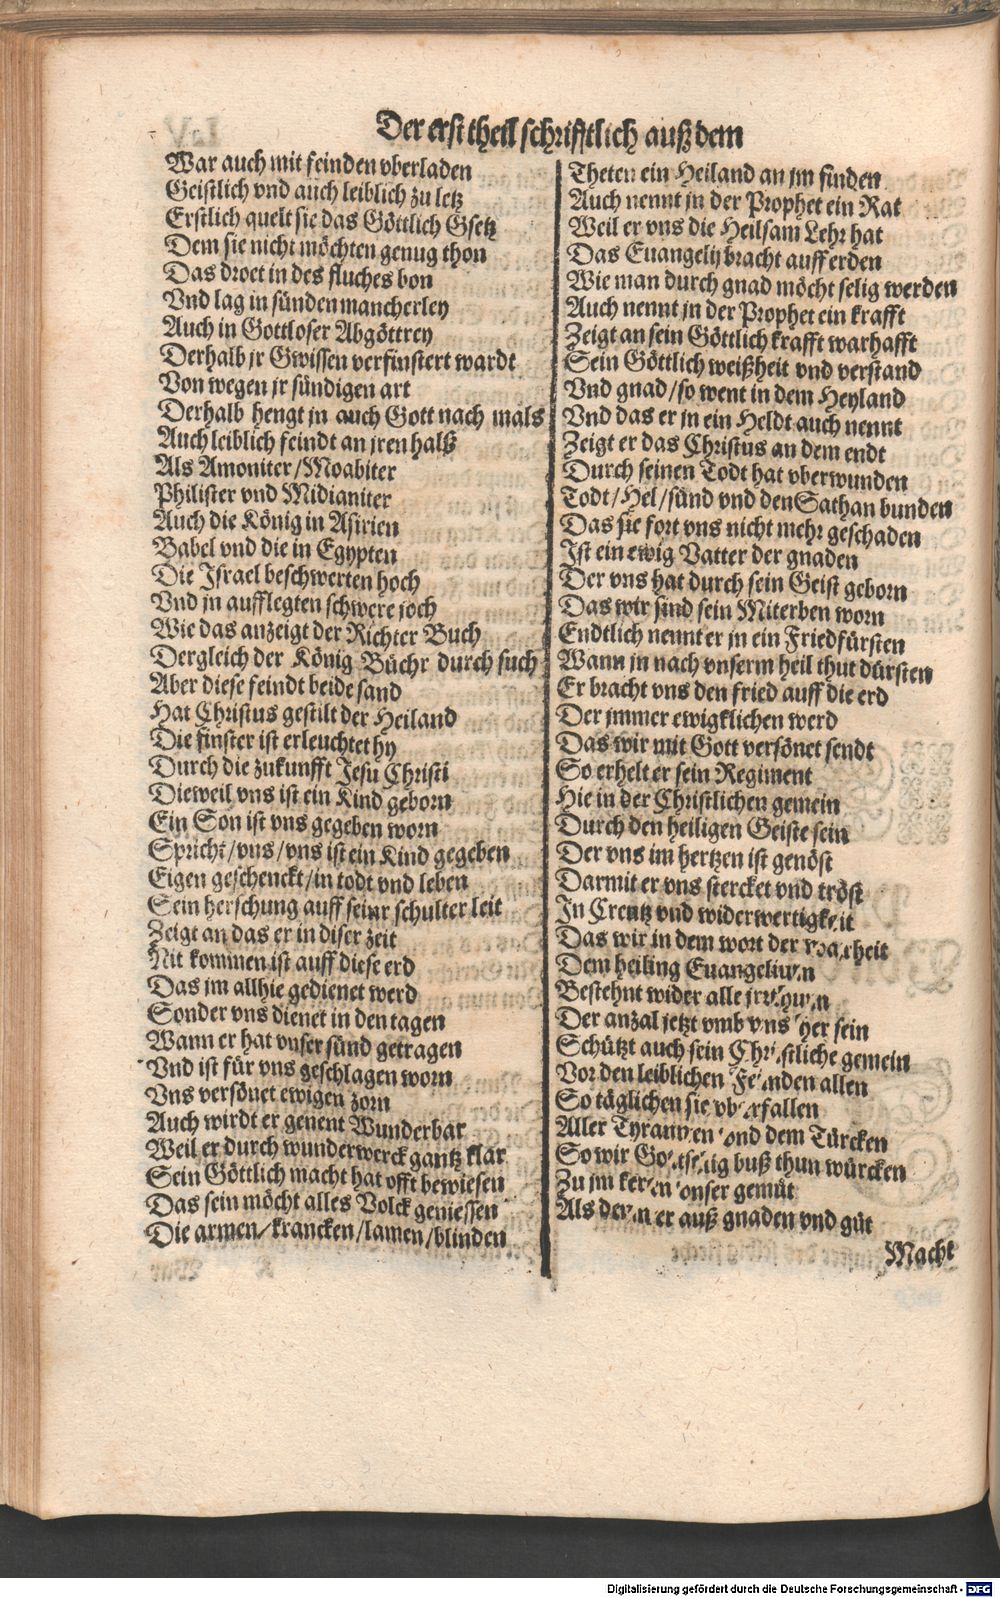 Der erst theil schrifftlich auß dem
War auch mit feinden vberladen
Geistlich vnd auch leiblich zu letz
Erstlich quelt sie das Göttlich Gsetz
Dem sie nicht möchten genug thon
Das droet in des fluches bon
Vnd lag in sünden mancherley
Auch in Gottloser Abgöttrey
Derhalb jr Gwissen verfinstert wardt
Von wegen jr sündigen art
Derhalb hengt jn auch Gott nach mals
Auch leiblich feindt an jren halß
Als Amoniter/Moabiter
Philister vnd Midianiter
Auch die König in Asirien
Babel vnd die in Egypten
Die Israel beschwerten hoch
Vnd jn aufflegten schwere joch
Wie das anzeigt der Richter Buch
Dergleich der König Büchr durch such
Aber diese feindt beide sand
Hat Christus gestilt der Heiland
Die finster ist erleuchtet hy
Durch die zukunfft Jesu Christi
Dieweil vns ist ein Kind geborn
Ein Son ist vns gegeben worn
Spricht/vns/vns ist ein Kind gegeben
Eigen geschenckt/in todt vnd leben
Sein herschung auff seinr schulter leit
Zeigt an das er in diser zeit
Nit kommen ist auff diese erd
Das jm allhie gedienet werd
Sonder vns dienet in den tagen
Wann er hat vnser sünd getragen
Vnd ist für vns geschlagen worn
Vns versönet ewigen zorn
Auch wirdt er genent Wunderbar
Weil er durch wunderwerck gantz klar
Sein Göttlich macht hat offt bewiesen
Das sein möcht alles Volck geniessen
Die armen/krancken/lamen/blinden
Theten ein Heiland an jm finden
Auch nennt jn der Prophet ein Rat
Weil er vns die Heilsam Lehr hat
Das Euangelij bracht auff erden
Wie man durch gnad möcht selig werden
Auch nennt jn der Prophet ein krafft
Zeigt an sein Göttlich krafft warhafft
Sein Göttlich weißheit vnd verstand
Vnd gnad/so went in dem Heyland
Vnd das er jn ein Heldt auch nennt
Zeigt er das Christus an dem endt
Durch seinen Todt hat vberwunden
Todt/Hel/sünd vnd den Sathan bunden
Das sie fort vns nicht mehr geschaden
Ist ein ewig Vatter der gnaden
Der vns hat durch sein Geist geborn
Das wir sind sein Miterben worn
Endtlich nennt er jn ein Friedfürsten
Wann jn nach vnserm heil thut dürsten
Er bracht vns den fried auff die erd
Der jmmer ewigklichen werd
Das wir mit Gott versönet sendt
So erhelt er sein Regiment
Hie in der Christlichen gemein
Durch den heiligen Geiste sein
Der vns im hertzen ist genöst
Darmit er vns stercket vnd tröst
In Creutz vnd widerwertigkeit
Das wir in dem wort der warheit
Dem heiling Euangelium
Bestehnt wider alle
Der anzal jetzt vmb vns her sein
Schützt auch sein Christliche gemein
Vor den leiblichen Feinden allen
So täglichen sie vberfallen
Aller Tyrannen vnd dem Türcken
So wir Gottselig buß thun würcken
Zu jm keren vnser gemüt
Als denn er auß gnaden vnd güt
Macht
Digitalisierung gefördert durch die Deutsche Forschungsgemeinschaft - DFG